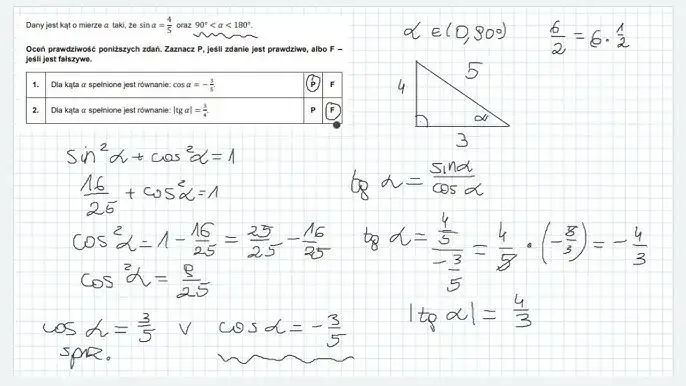 Dany jest kąt o mierze α taki, że sin α = 4/5 oraz 90° < α < 180°.
Oceń prawdziwość poniższych zdań. Zaznacz P, jeśli zdanie jest prawdziwe, albo F –
jeśli jest fałszywe.
1. Dla kąta α spełnione jest równanie: cos α = − 3/5 P F
2. Dla kąta α spełnione jest równanie: |tg α| = 3/4 P F
α ∈ (0, 90°)
6/2 = 6 · 1/2
4
5
α
3
sin²α + cos²α = 1
16/25 + cos²α = 1
cos²α = 1 − 16/25 = 25/25 − 16/25
cos²α = 9/25
cos α = 3/5 ∨ cos α = − 3/5
spr.
tg α = sin α / cos α
tg α = (4/5) / (−3/5) = 4/5 · (− 5/3) = − 4/3
|tg α| = 4/3